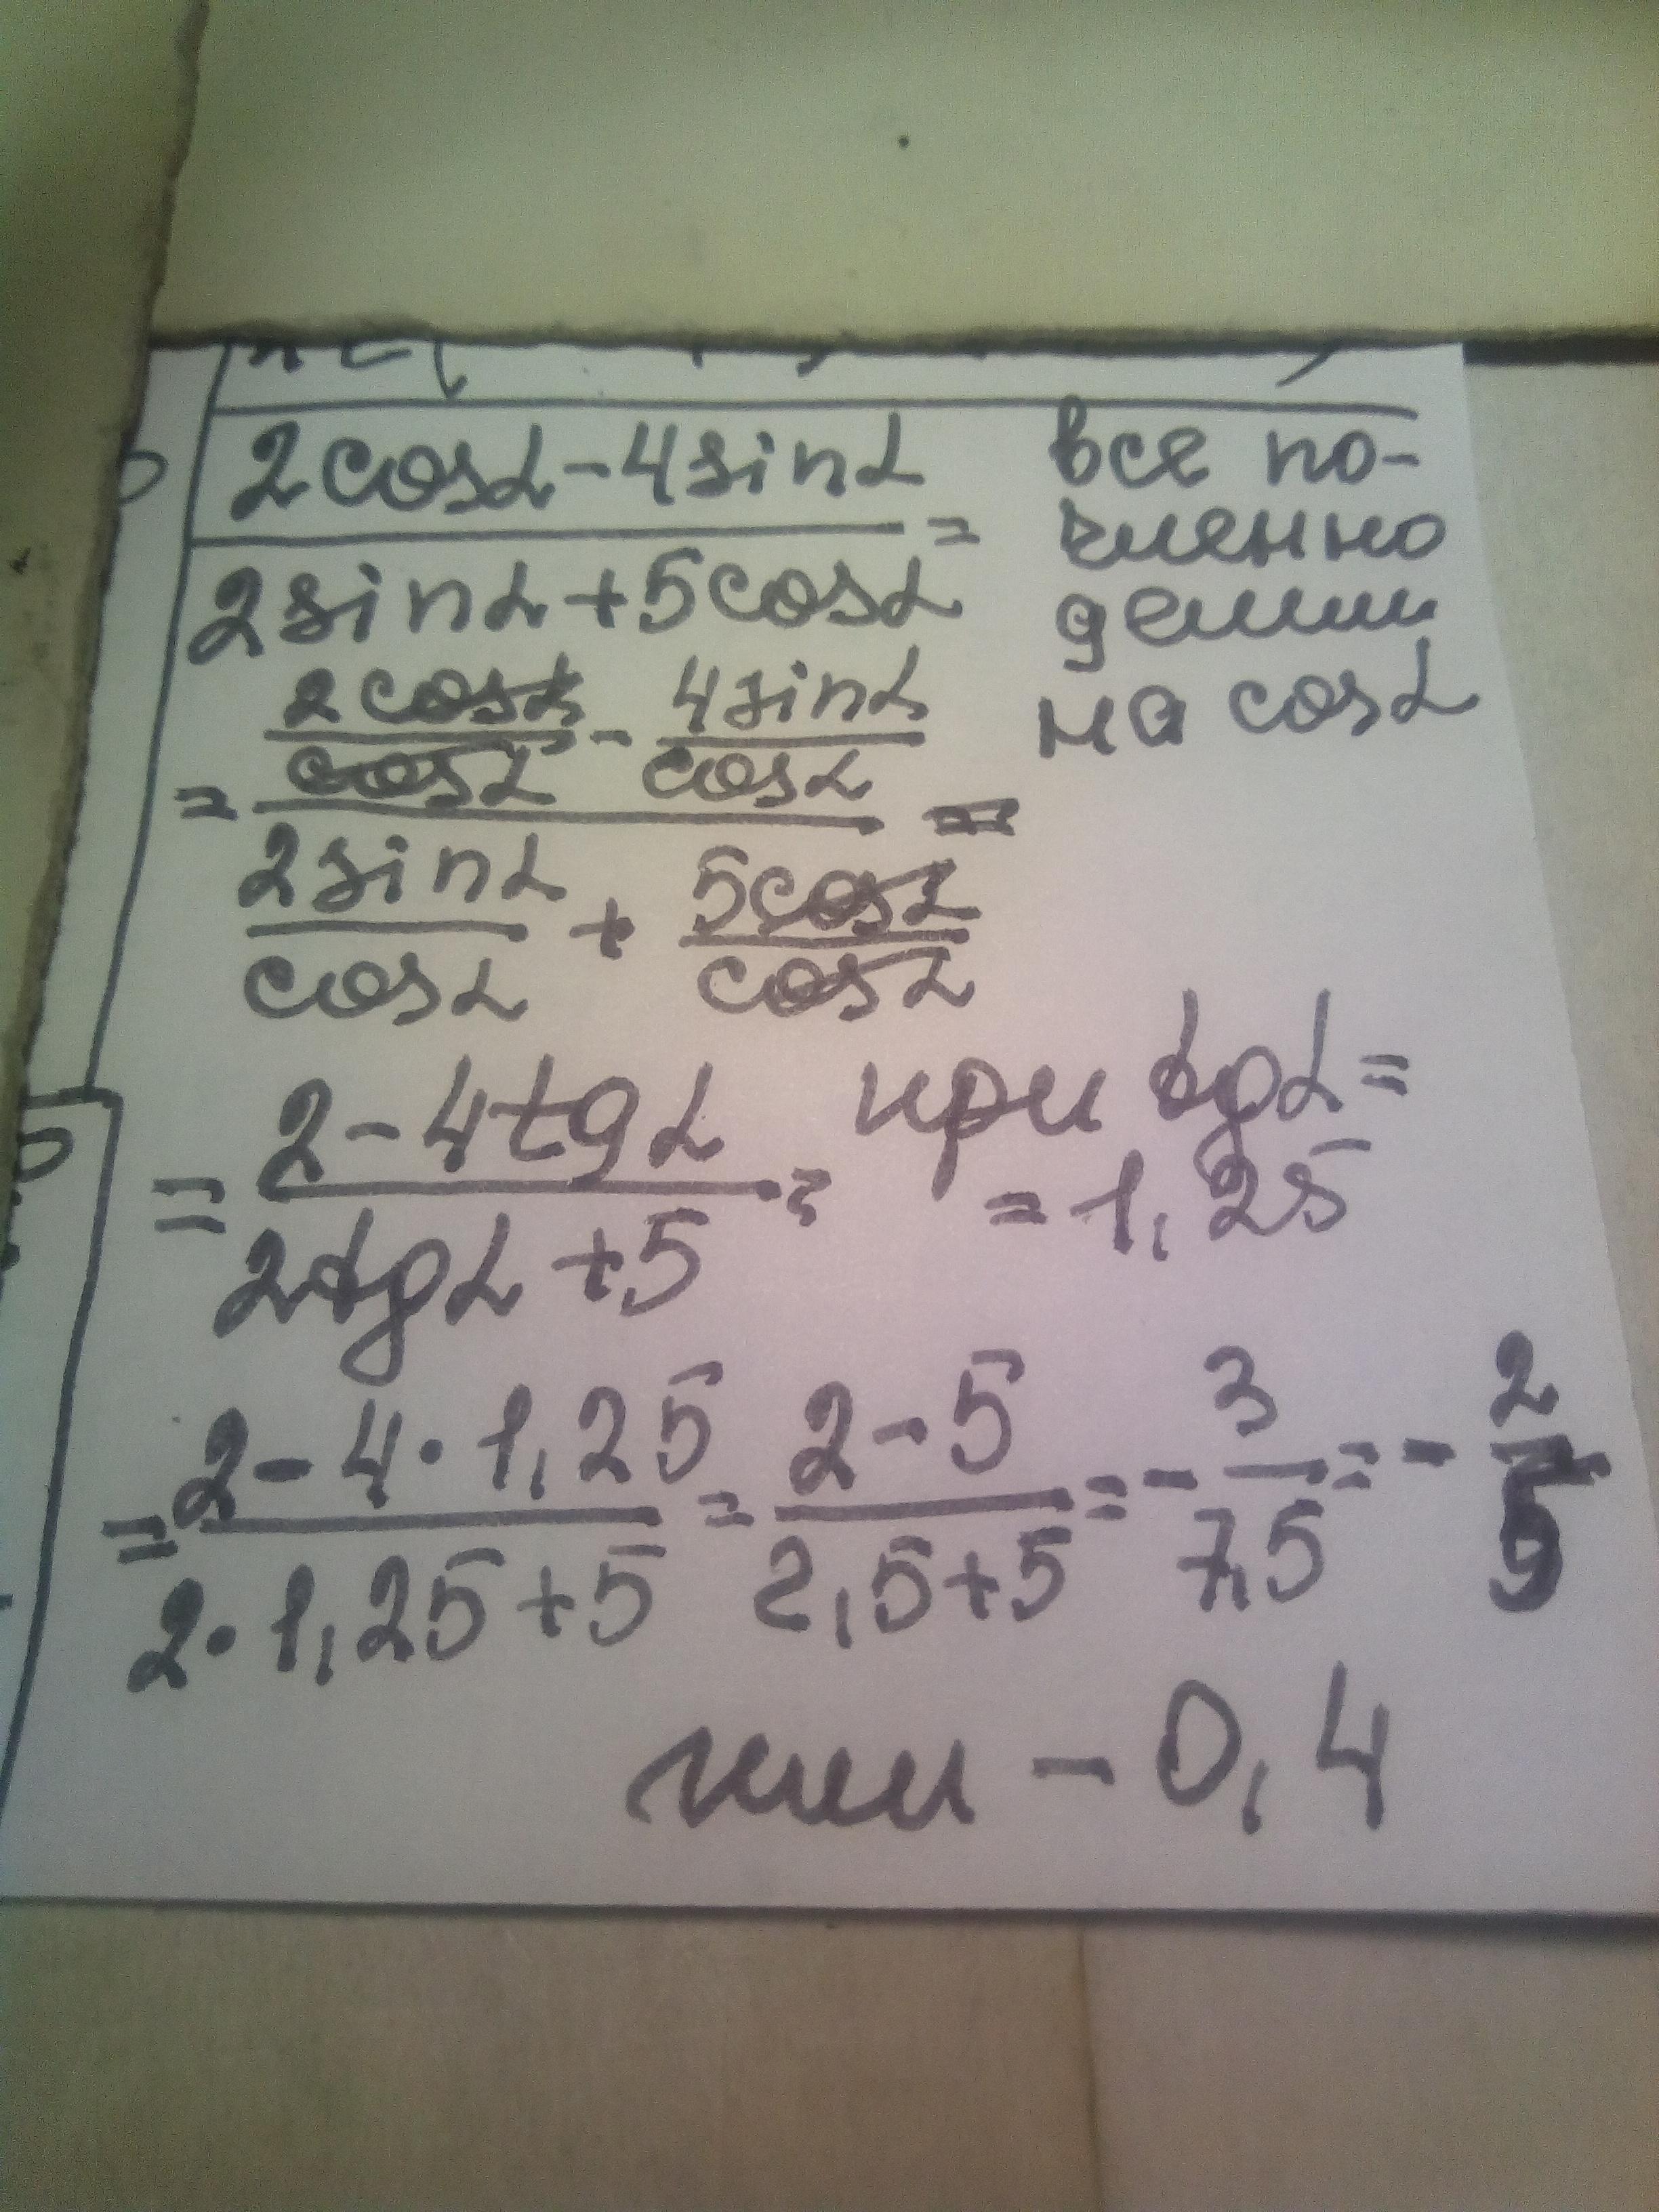 2cosα-4sinα
2sinα+5cosα =
все по-
членно
делим
на cosα
= 2cosα/cosα - 4sinα/cosα
2sinα/cosα + 5cosα/cosα =
= 2-4tgα / 2tgα+5 = при tgα=
=1,25
= 2-4·1,25 / 2·1,25+5 = 2-5 / 2,5+5 = - 3/7,5 = - 2/5
или -0,4